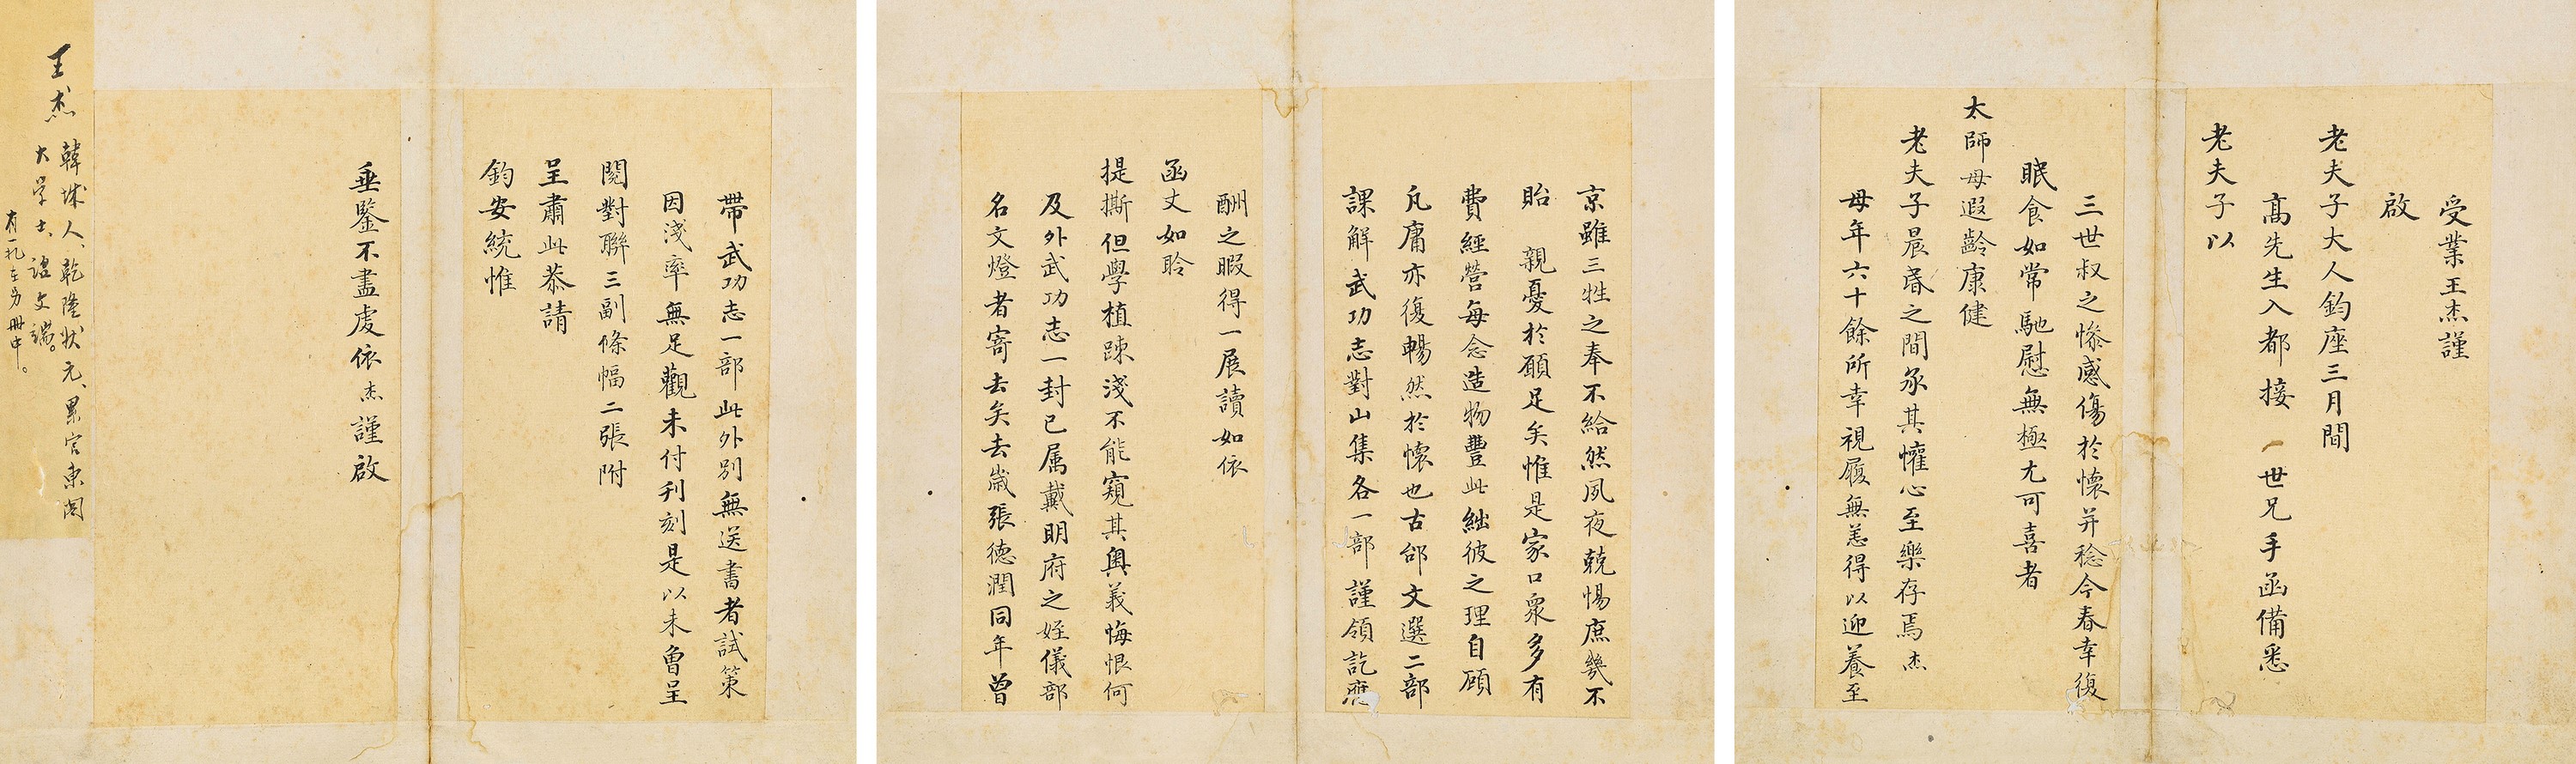 受業王杰謹
啟
老夫子大人鈞座三月間
高先生入都接 一世兄手函備悉
老夫子以
三世叔之慘感傷於懷并稔今春幸復
眠食如常馳慰無極尤可喜者
太師母遐齡康健
老夫子晨昏之間承其懽心至樂存焉杰
母年六十餘所幸視履無恙得以迎養至
京雖三牲之奉不給然夙夜兢惕庶幾不
貽 親憂於願足矣惟是家口衆多有
費經營每念造物豐此絀彼之理自顧
凡庸亦復暢然於懷也古邰文選二部
課解武功志對山集各一部謹領訖應
酬之暇得一展讀如依
函丈如聆
提撕但學植踈淺不能窺其奧義悔恨何
及外武功志一封已属戴明府之姪儀部
名文燈者寄去矣去嵗張德潤同年曾
帶武功志一部此外別無送書者試策
因淺率無足觀未付刋刻是以未曾呈
閱對聯三副條幅二張附
呈肅此恭請
鈞安統惟
垂鑒不盡虔依杰謹啟
王杰
韓城人、乾隆狀元、累官東閣
大学士、諡文端。
有一札在另冊中。